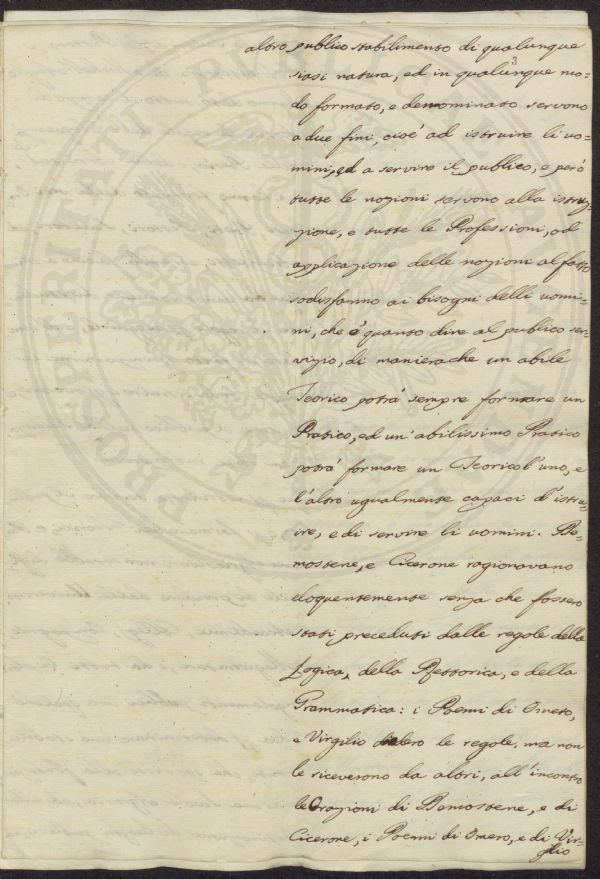 altro publico stabilimento di qualunque
3
siasi natura, ed in qualunque mo-
do formato, e denominato servono
a due fini, cioè ad istruire li uo-
mini, ed a servire il publico, e però
tutte le nozioni servono alla istru-
zione, e tutte le Professioni, ed
applicazione delle nozioni al fatto
sodisfanno ai bisogni delli uomi-
ni, che è quanto dire al publico ser-
vizio, di manierache un abile
Teorico potrà sempre formare un
Pratico, ed un' abilissimo Pratico
potrà formare un Teorico l'uno, e
l'altro ugualmente capaci d'istru-
ire, e di servire li uomini. De-
mostene, e Cicerone ragionavano
eloquentemente senza che fossero
stati preceduti dalle regole della
Logica, della Rettorica, e della
Grammatica: i Poemi di Omero,
e Virgilio diedero le regole, ma non
le riceverono da altri, all'incontro
le Orazioni di Demostene, e di
Cicerone, i Poemi di Omero, e di Vir-
gilio
PROSPERITATI PUBLICAE